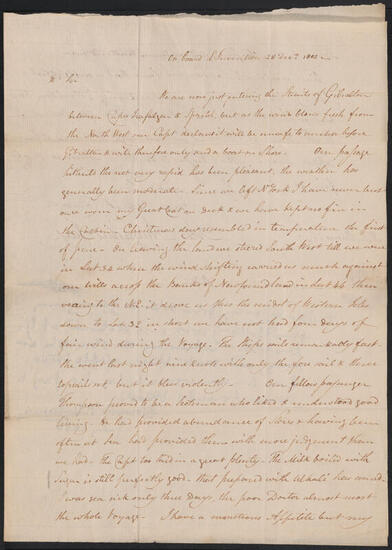 On board L'Invention 28 Decr. 1802
Sir
We are now just entering the Straits of Gibraltar
between Cape Trafalgar & Spartel, but as the wind blows fresh from
the North West our Capt declares it will be unsafe to anchor before
Gibraltar & will therefore only send a boat on Shore. Our passage
tho not very rapid has been pleasant, the weather has
generally been moderate. Since we left N. York I have never but
once worn my Great Coat on deck & we have kept no fire in
the Cabbin. Christmas day resembled in temperature the first
of June. On leaving the land we steered South West till we were
in Latt. 34 when the wind shifting carried us much against
our wills across the banks of Newfoundland in Latt 44 then
veering to the N.E. it drove us thro the midst of Western Isles
down to Latt. 32 in short we have not had four days of
fair wind during the Voyage. The ship sails remarkably fast.
She went last night nine knots with only the fore sail & three
topsails set, but it blew violently. Our fellow passenger
Thompson proved to be a Scotsman who liked & understood good
living. He had provided abundance of Stores & having been
often at Sea had provided them with more judgement than
we had. The Capt too laid in a great plenty. The Milk boiled with
Sugar is still perfectly good. That prepared with Alkali has
I was sea sick only three days, the poor Doctor almost most
the whole Voyage. I have a monstrous Appetite but my